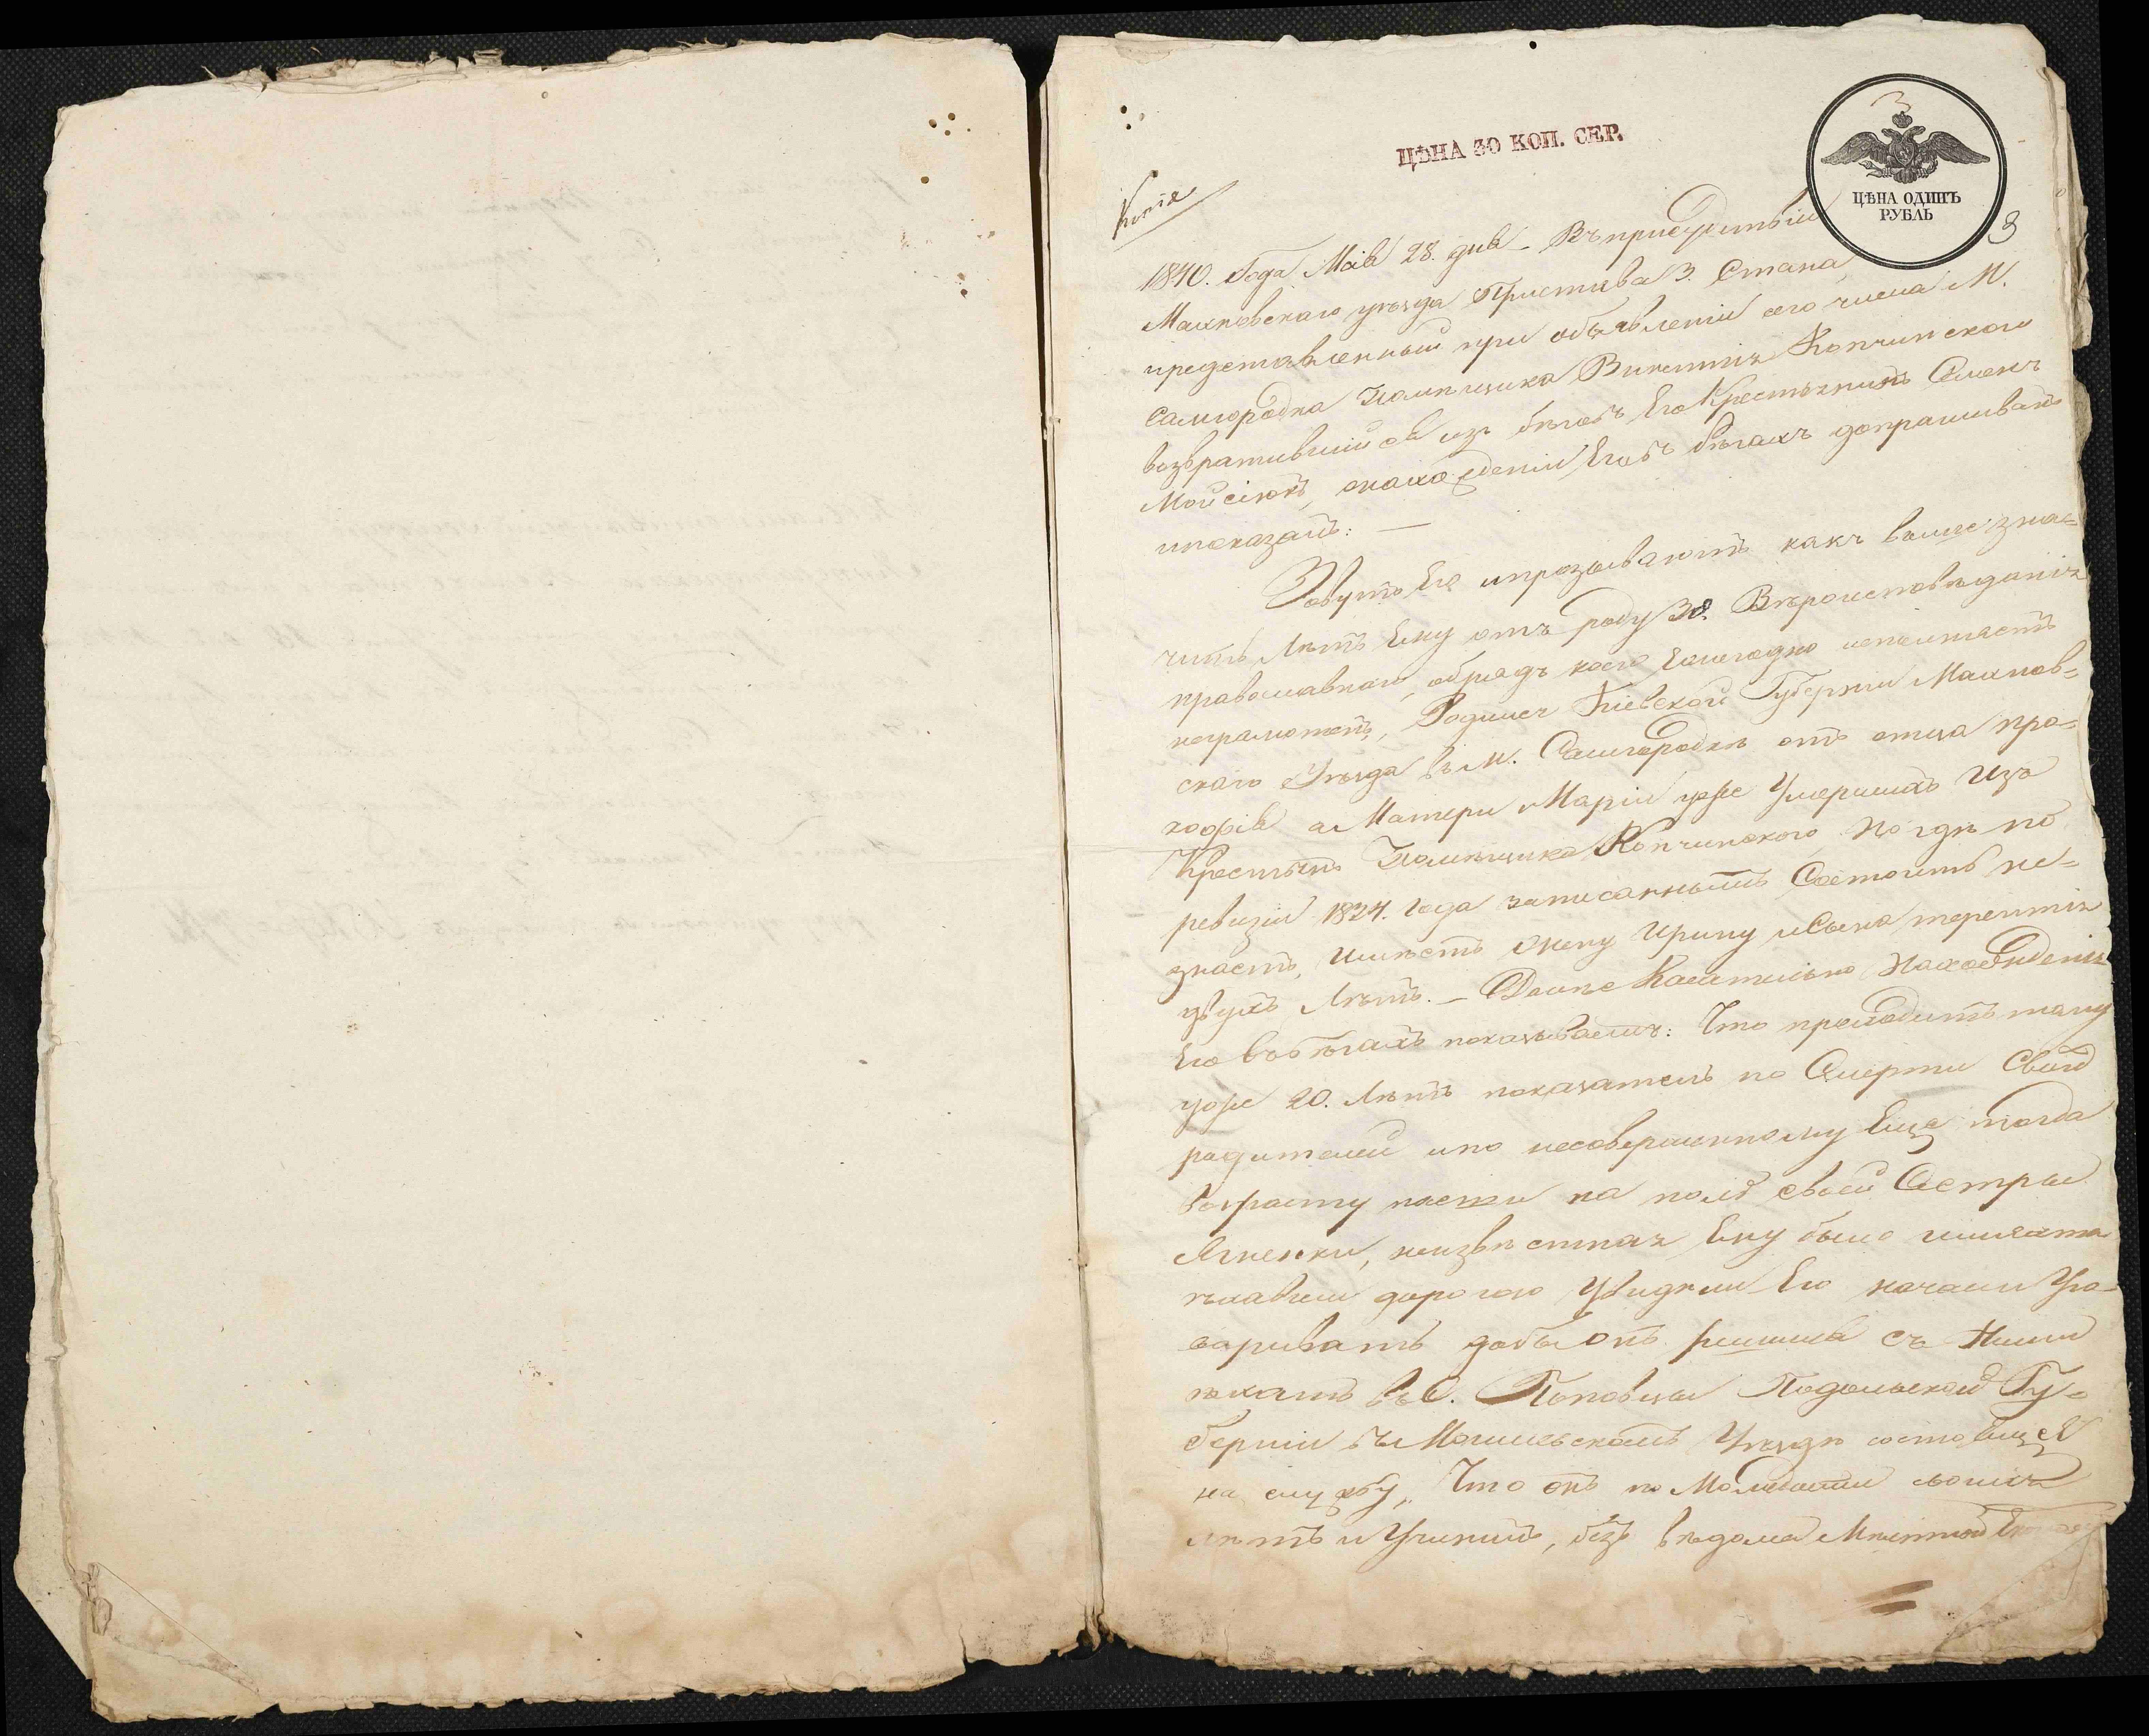 ЦѢНА 30 КОП. СЕР.
3
ЦѢНА ОДИНЪ
РУБЛЬ
3
Копія
1840. Года Маія 28. дня Въ присудствіи
Махновскаго уѣзда Пристава 3. Стана,
представленный при объявленіи сего числа М.
Самгородка Помѣщика Викентія Копчинского
возвратившійся изъ бѣговъ Его Крестьянинъ Семенъ
Мойсіюкъ, онахожденіи Его въ бѣгахъ допрашиванъ
ипоказалъ: —
Зовутъ Его ипрозываютъ какъ выше зна=
читъ, Лѣтъ Ему отъ роду 30. Вѣроисповѣданія
православнаго, обрядъ коего Ежегодно исполняетъ
неграмотенъ, Родился Кіевской Губерніи Махнов=
скаго Уѣзда въ М. Самгородкѣ отъ отца Про=
кофія а Матери Маріи уже Умершихъ Изъ
Крестьянъ Помѣщика Копчинского, Но гдѣ по
ревизіи 1824. Года записаннымъ Состоитъ не=
знаетъ, Имѣетъ Жену Ирину иСына терентія
двухъ Лѣтъ. — Далѣе Касательно Нахожденія
Его въ бѣгахъ показываетъ: Что проходитъ тому
уже 20. Лѣтъ показатель по Смерти Своихъ
родителей ипо несовершенному Еще тогда
возрасту пасши на полѣ своей Сестры
Ягненки, неизвѣстная Ему было шляхта
ѣхавши дорогою Увидѣли Его начали Уго=
варивать дабы онъ решился съ Ними
ѣхать въ С. Поповцы Подольской Гу=
берніи въ Могилевскомъ Уѣздѣ состоящей
на службу, Что онъ по Молодости своихъ
лѣтъ и Учинилъ, безъ вѣдома Мѣстной